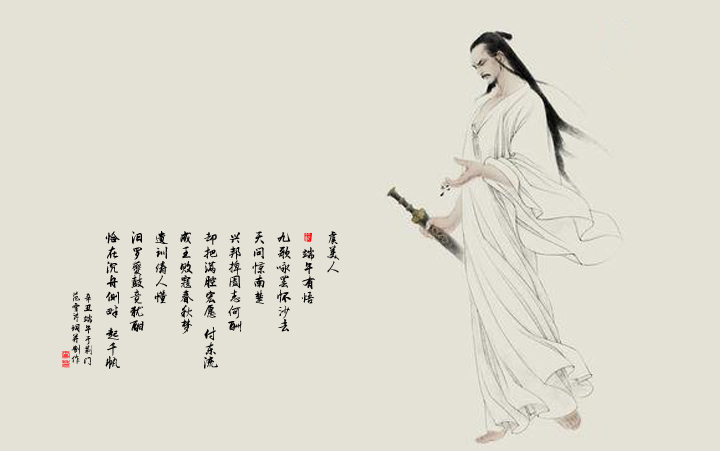 虞美人
端午有悟
九歌咏罢怀沙去
天问惊南楚
兴邦捍国志何酬
却把满腔宏愿 付东流
成王败寇春秋梦
遗训倩人懂
汨罗鼍鼓竞犹酣
恰在沉舟侧畔 起千帆
辛丑端午于荆门
范雪芹填并制作